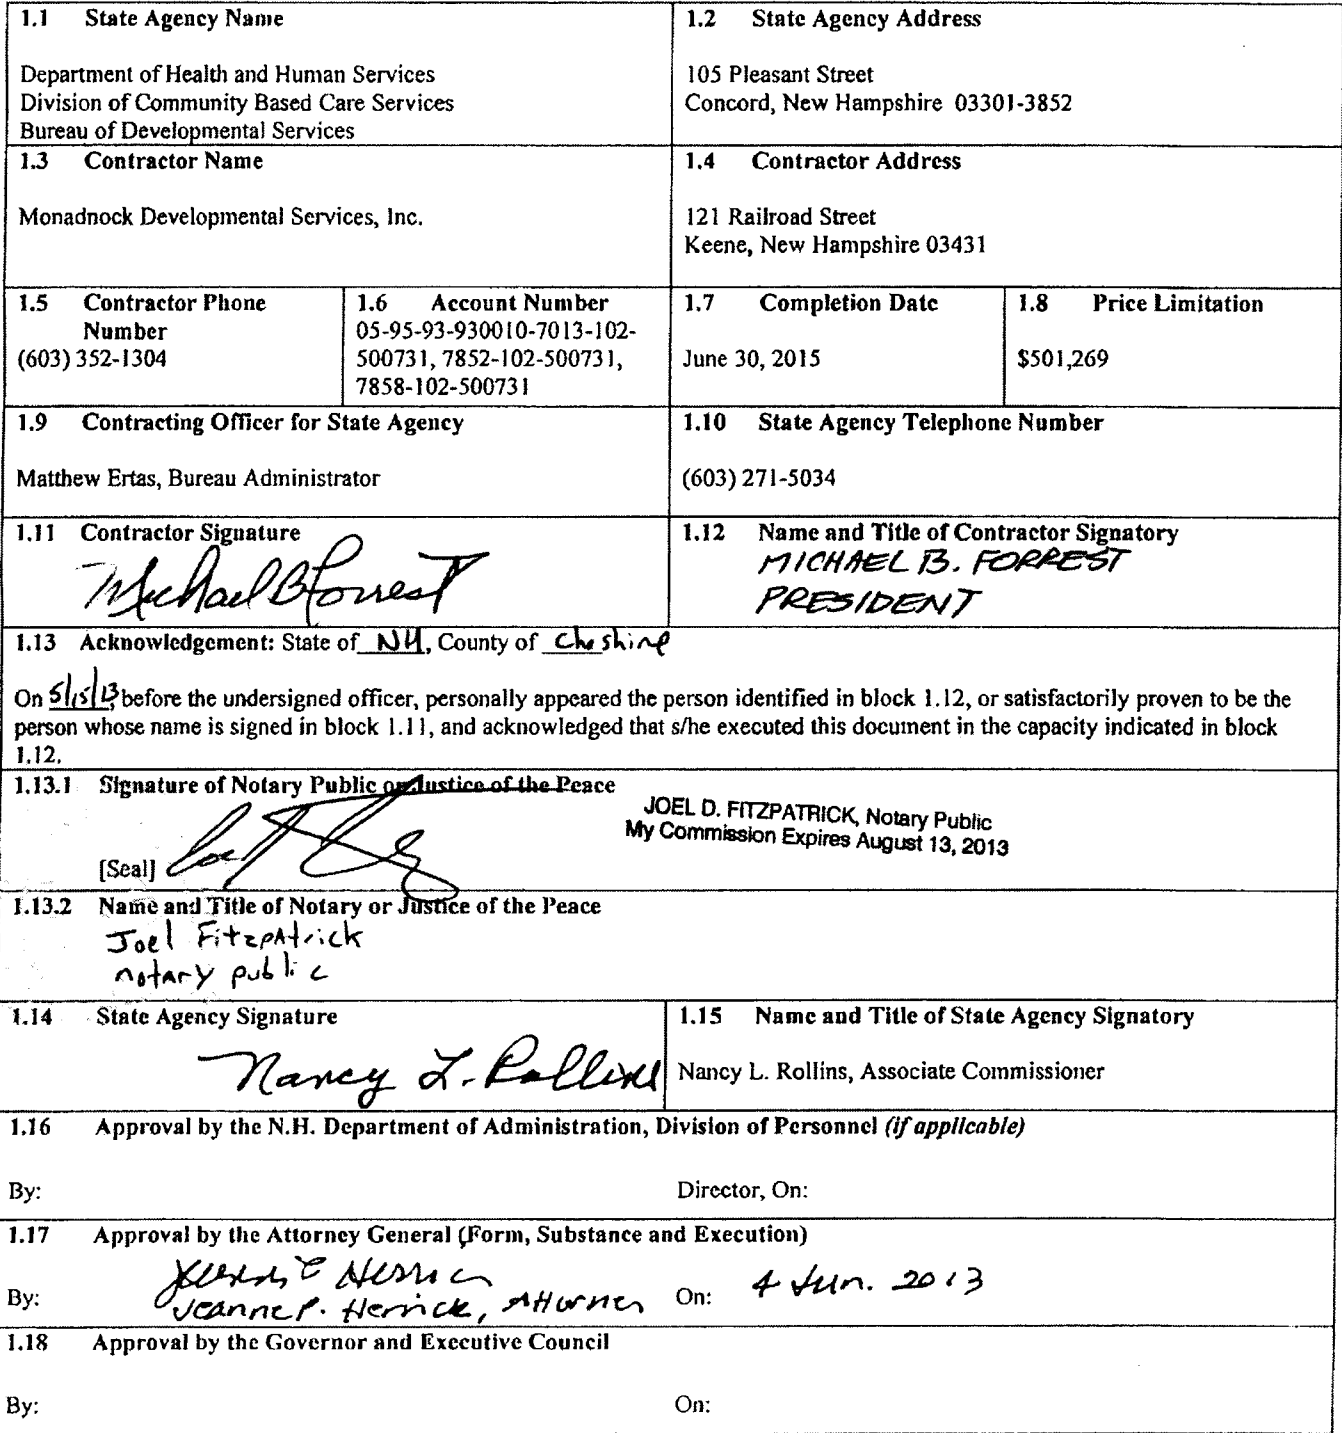 1.1 State Agency Name
Department of Health and Human Services
Division of Community Based Care Services
Bureau of Developmental Services
1.2 State Agency Address
105 Pleasant Street
Concord, New Hampshire 03301-3852
1.3 Contractor Name
Monadnock Developmental Services, Inc.
1.4 Contractor Address
121 Railroad Street
Keene, New Hampshire 03431
1.5 Contractor Phone
Number
(603) 352-1304
1.6 Account Number
05-95-93-930010-7013-102-
500731, 7852-102-500731,
7858-102-500731
1.7 Completion Date
June 30, 2015
1.8 Price Limitation
$501,269
1.9 Contracting Officer for State Agency
Matthew Ertas, Bureau Administrator
1.10 State Agency Telephone Number
(603) 271-5034
1.11 Contractor Signature
Michael B Forrest
1.12 Name and Title of Contractor Signatory
MICHAEL B. FORREST
PRESIDENT
1.13 Acknowledgement: State of NH, County of Cheshire
On 5/15/13 before the undersigned officer, personally appeared the person identified in block 1.12, or satisfactorily proven to be the
person whose name is signed in block 1.11, and acknowledged that s/he executed this document in the capacity indicated in block
1.12.
1.13.1 Signature of Notary Public or Justice of the Peace
JOEL D. FITZPATRICK, Notary Public
My Commission Expires August 13, 2013
[Seal]
1.13.2 Name and Title of Notary or Justice of the Peace
Joel Fitzpatrick
notary public
1.14 State Agency Signature
Nancy L. Rollins
1.15 Name and Title of State Agency Signatory
Nancy L. Rollins, Associate Commissioner
1.16 Approval by the N.H. Department of Administration, Division of Personnel (if applicable)
By:
Director, On:
1.17 Approval by the Attorney General (Form, Substance and Execution)
By: Jeanne P. Herrick, Attorney
On: 4 Jun. 2013
1.18 Approval by the Governor and Executive Council
By:
On: